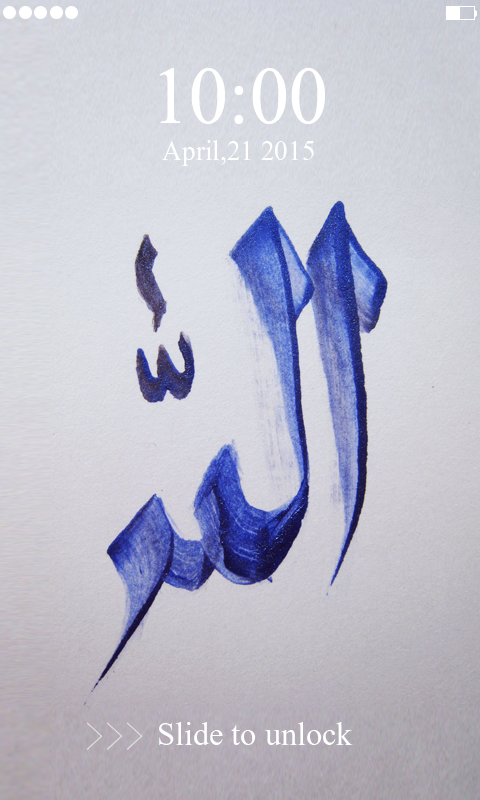 10:00
April,21 2015
الله
Slide to unlock